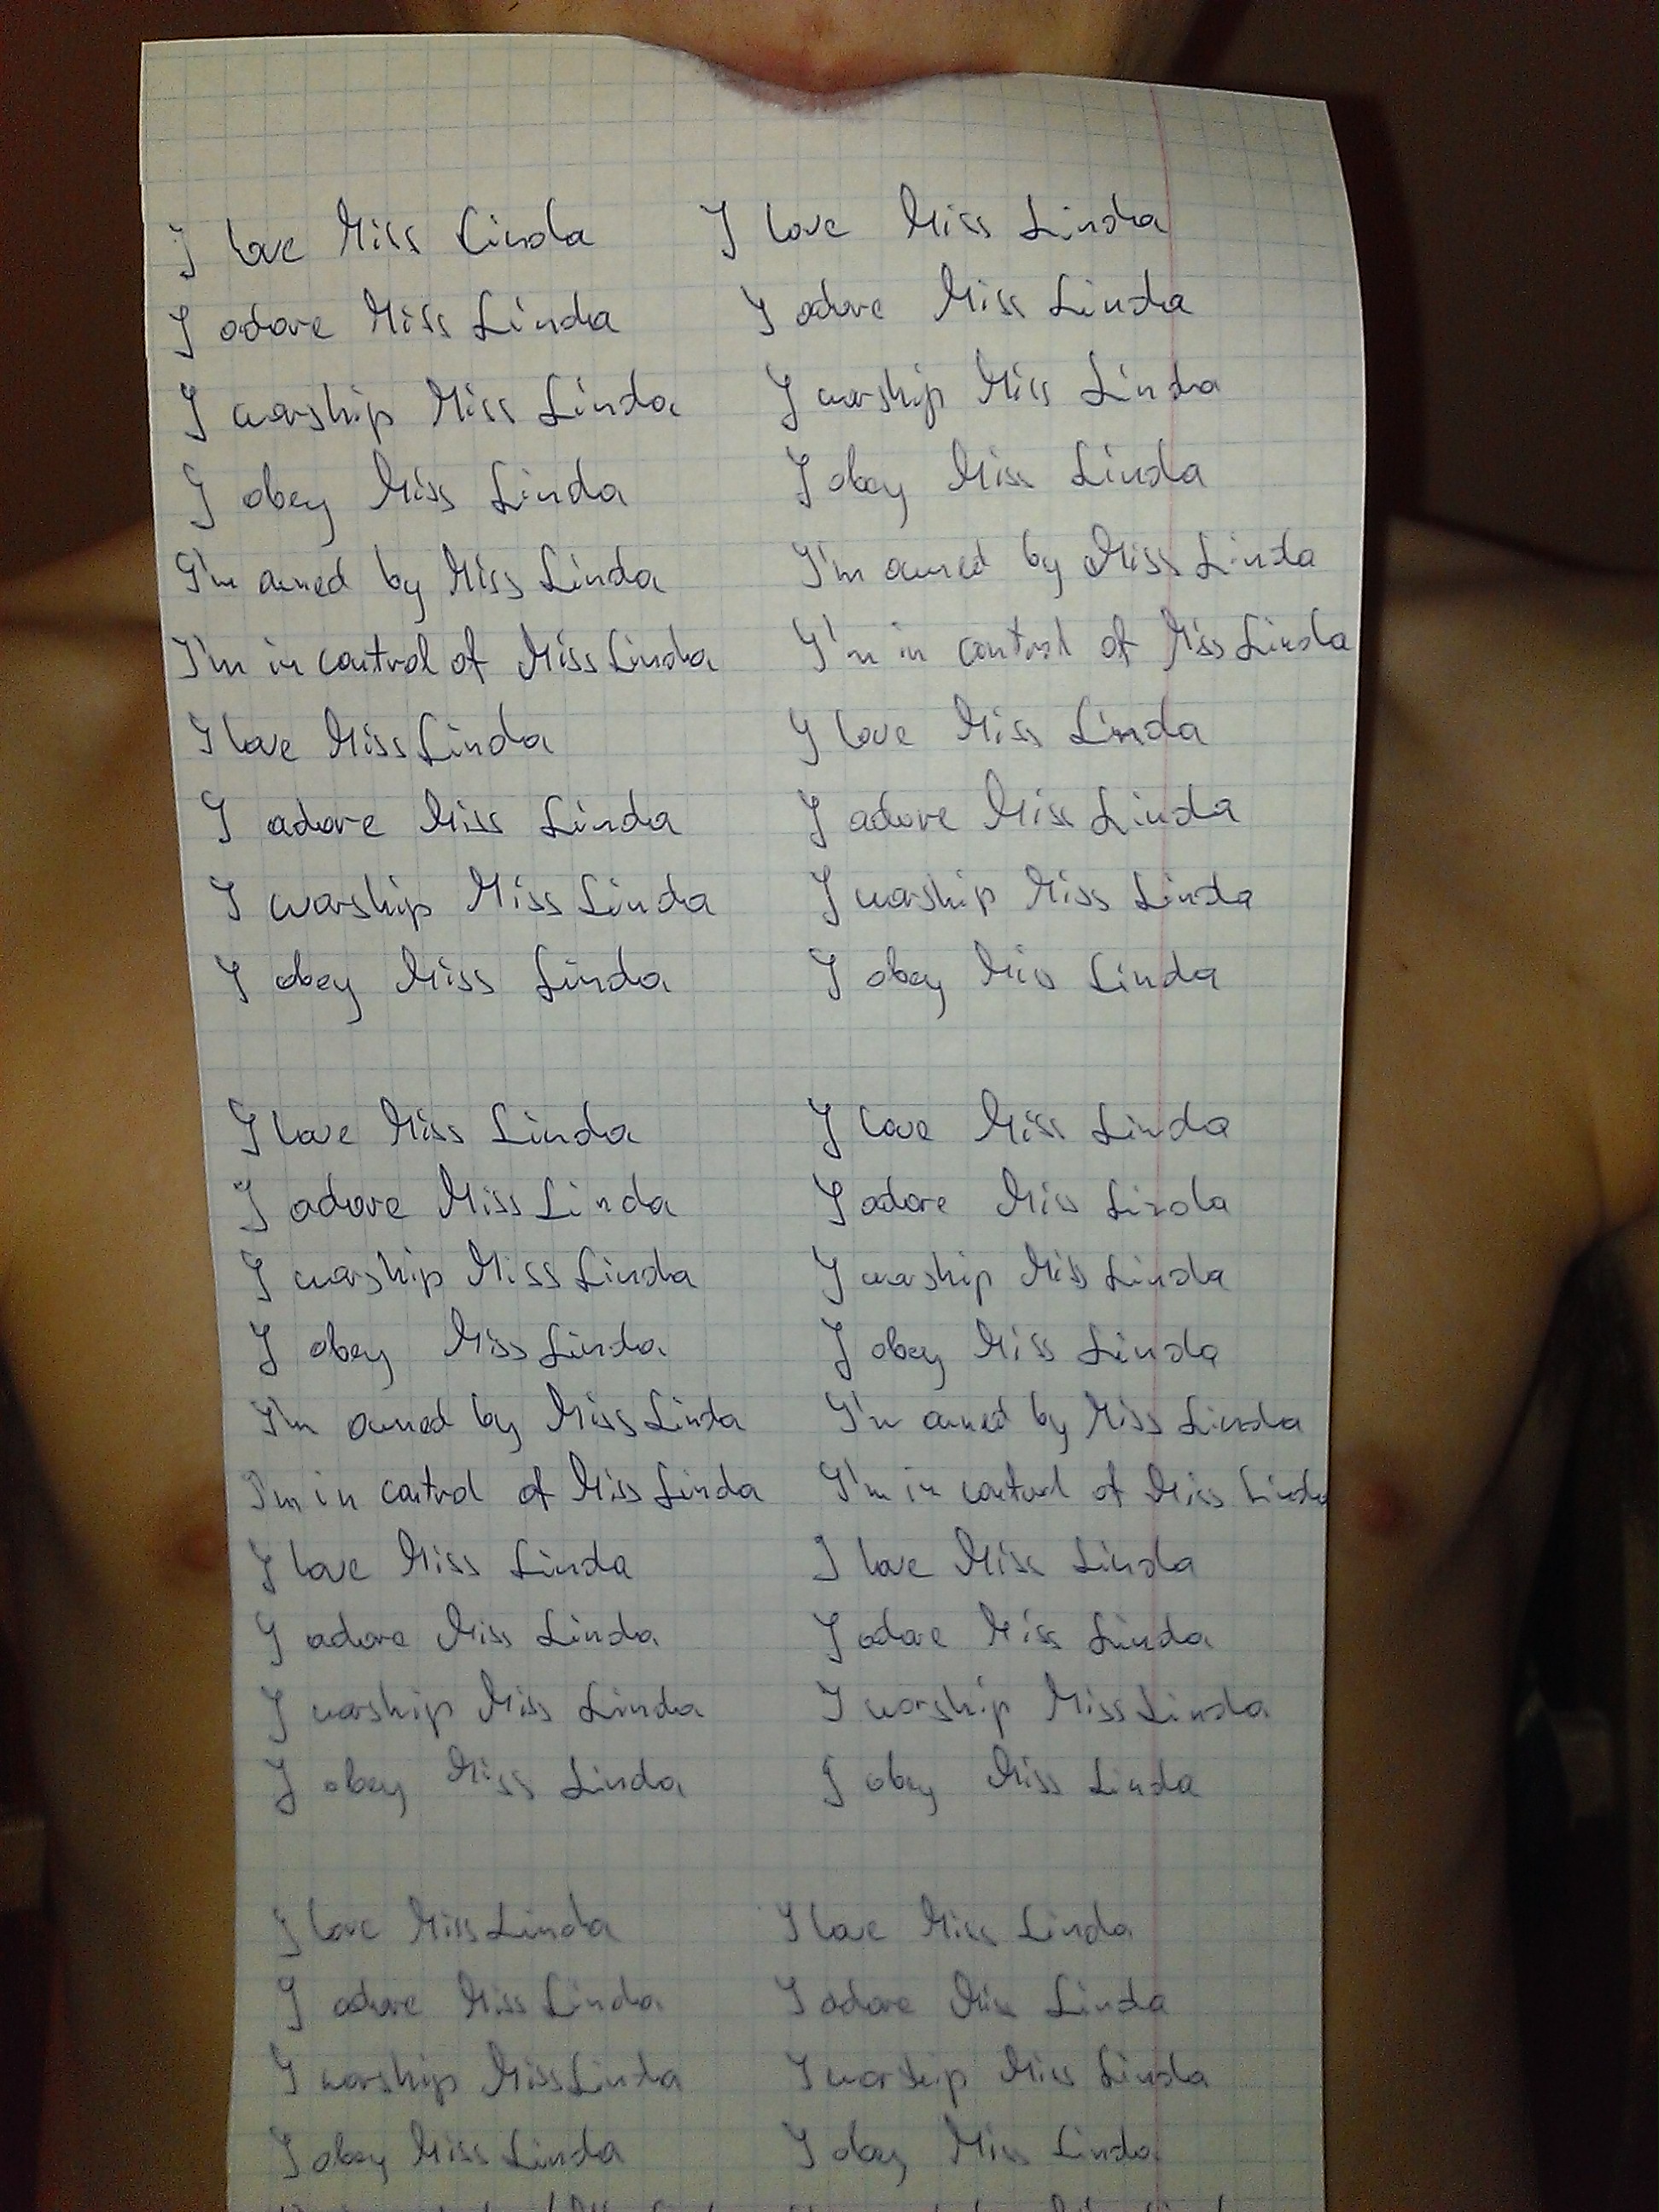 I love Miss Linda I love Miss Linda
I adore Miss Linda I adore Miss Linda
I worship Miss Linda I worship Miss Linda
I obey Miss Linda I obey Miss Linda
I'm owned by Miss Linda I'm owned by Miss Linda
I'm in control of Miss Linda I'm in control of Miss Linda
I love Miss Linda I love Miss Linda
I adore Miss Linda I adore Miss Linda
I worship Miss Linda I worship Miss Linda
I obey Miss Linda I obey Miss Linda
I love Miss Linda I love Miss Linda
I adore Miss Linda I adore Miss Linda
I worship Miss Linda I worship Miss Linda
I obey Miss Linda I obey Miss Linda
I'm owned by Miss Linda I'm owned by Miss Linda
I'm in control of Miss Linda I'm in control of Miss Linda
I love Miss Linda I love Miss Linda
I adore Miss Linda I adore Miss Linda
I worship Miss Linda I worship Miss Linda
I obey Miss Linda I obey Miss Linda
I love Miss Linda I love Miss Linda
I adore Miss Linda I adore Miss Linda
I worship Miss Linda I worship Miss Linda
I obey Miss Linda I obey Miss Linda